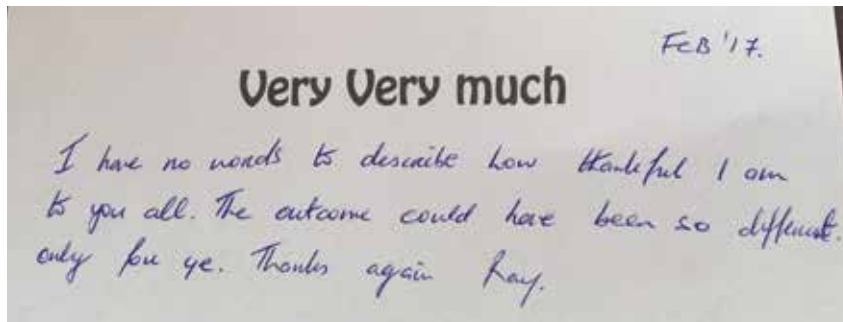 FEB '17.
Very Very much
I have no words to describe how thankful I am
to you all. The outcome could have been so different.
only for ye. Thanks again Ray.